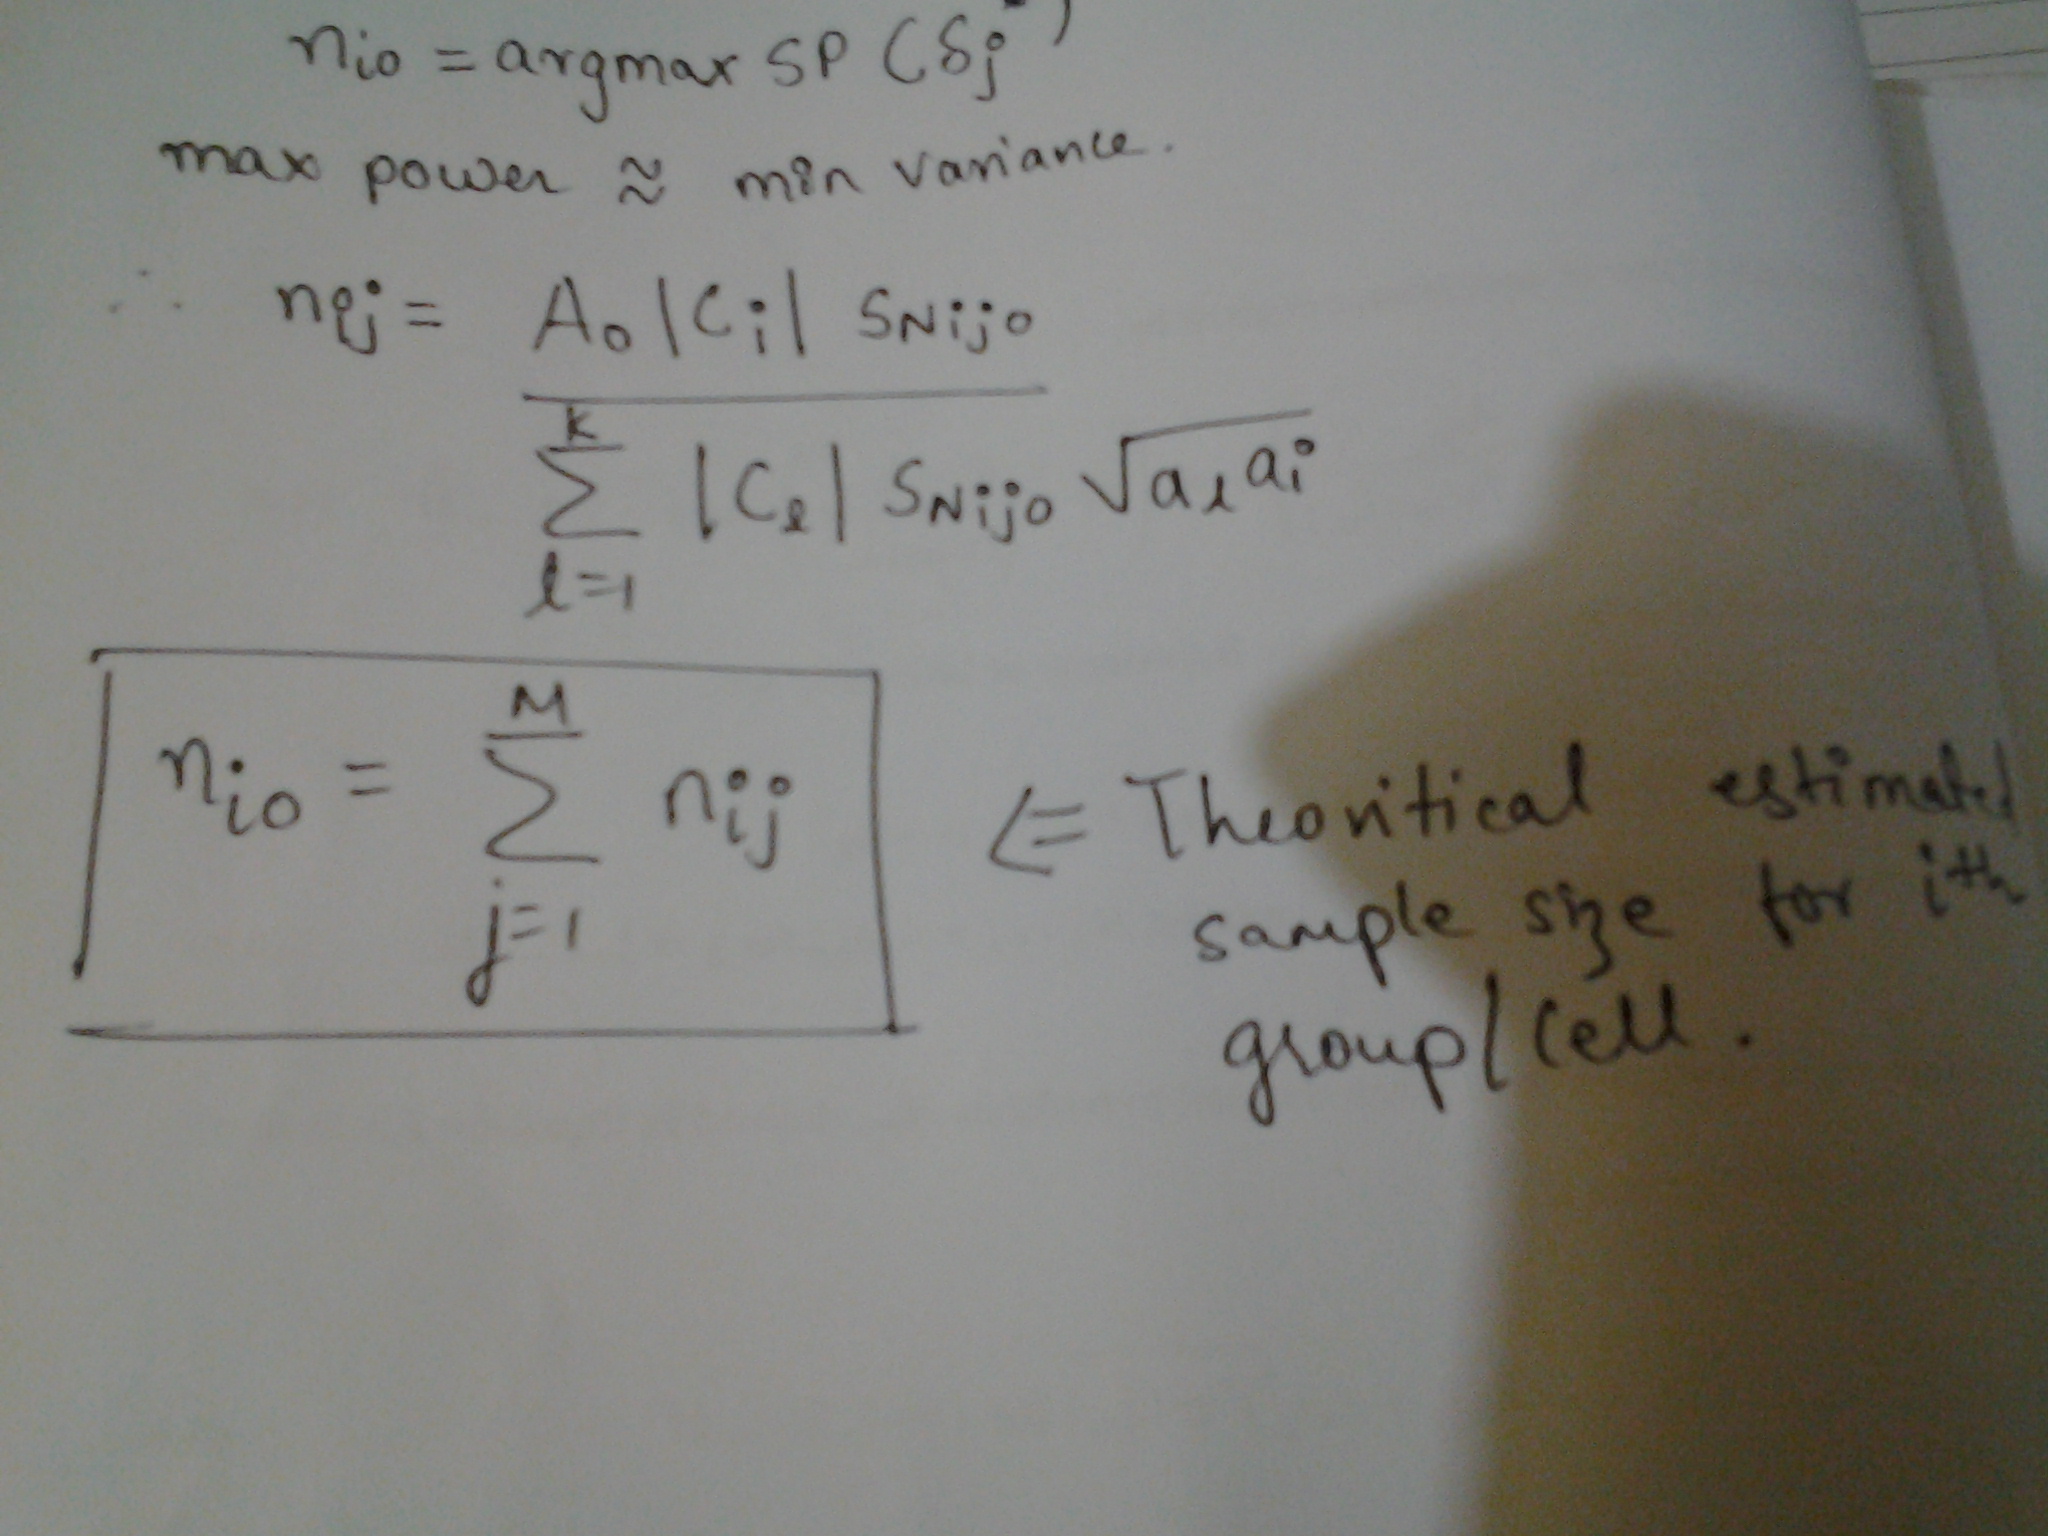 nio = argmax SP (δj)
max power ≈ min variance.
∴ nij = A0 |Ci| SNijo
K
Σ |Cl| SNijo √alai
l=1
M
nio = Σ nij ⇐ Theoritical estimated
j=1 sample size for ith
group/cell.